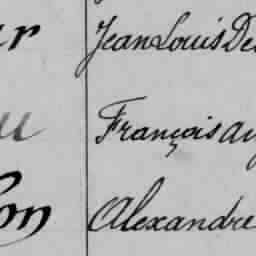 ur Jean Louis De
u François au
lon Alexandre